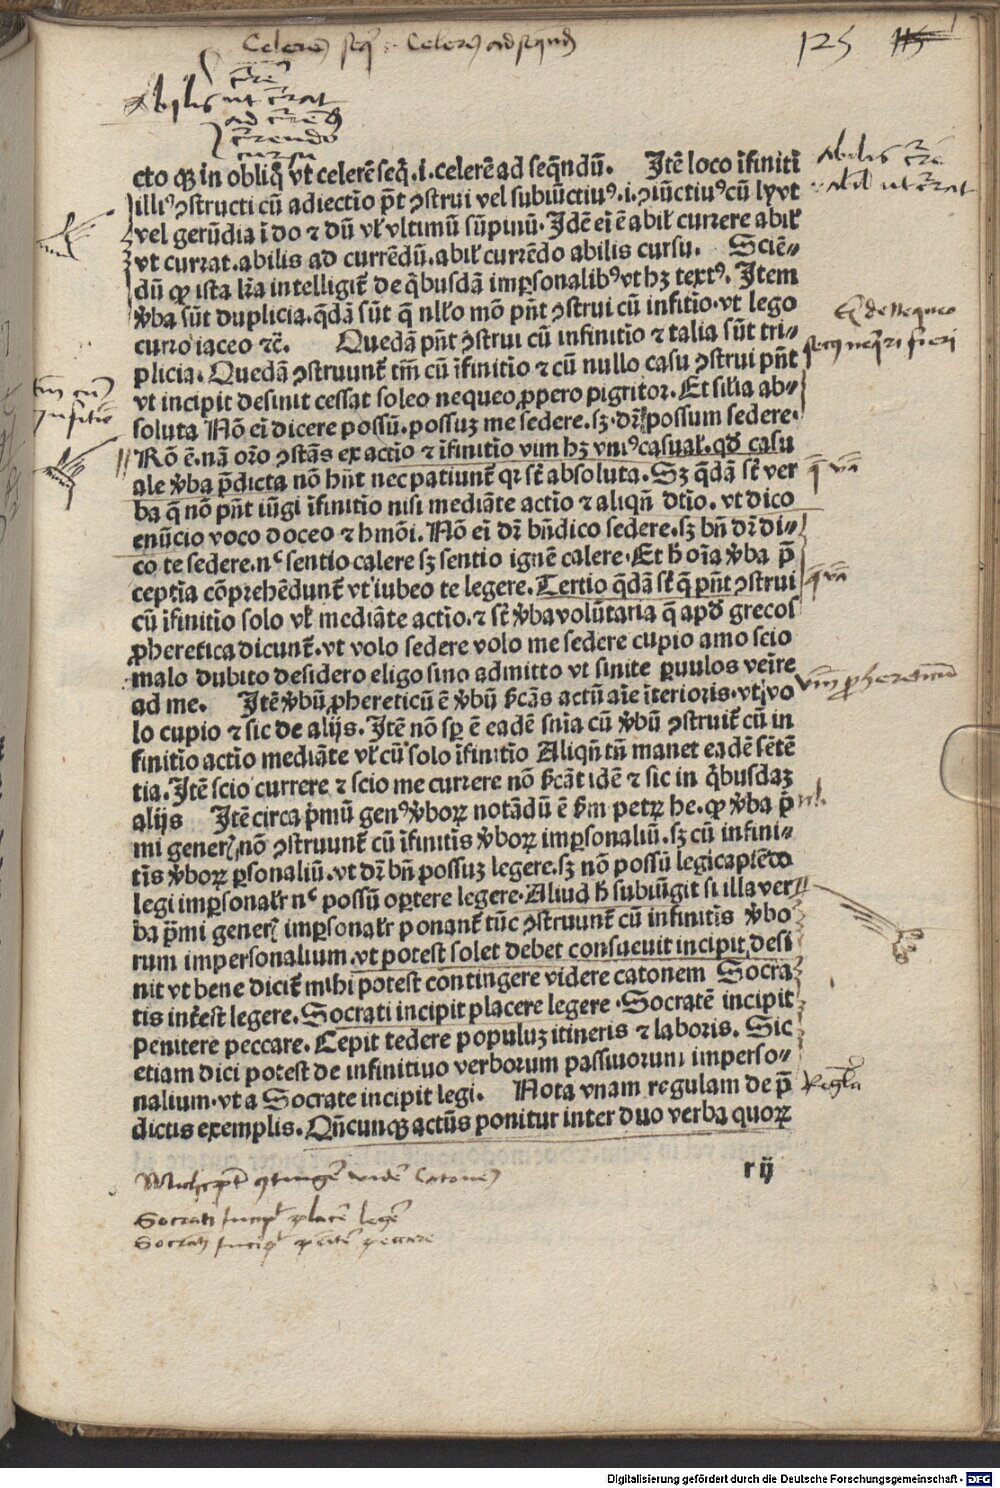 Celerē seq̄ .i. Celerē ad seqnd̄
125
abilis
ut c̄rat
ad c̄rēd
c̄rendo
cursu
cto qꝫ in obliq̄ vt celerē seq̄.i.celerē ad seq̄ndū. Itē loco īfiniti
illiꝰ ꝯstructi cū adiectio p̄t ꝯstrui vel subiūctiuꝰ.i.ꝯiūctiuꝰ cū ly vt
vel gerūdia ī do ⁊ dū vł vltimū sūpinū. Idē ei ē abił currere abił
vt currat.abilis ad currēdū.abił currēdo abilis cursu. Sciē⸗
dū ꝙ ista lr̄a intelligit̄ de q̄busdā imꝑsonalibꝰ vt hꝫ textꝰ. Item
v̄ba sūt duplicia.q̄dā sūt q̄ nłło mō pn̄t ꝯstrui cū infitīo.vt lego
curro iaceo ⁊c̄. Quedā pn̄t ꝯstrui cū infinitīo ⁊ talia sūt tri⸗
plicia. Quedā ꝯstruunt̄ tm̄ cū īfinitīo ⁊ cū nullo casu ꝯstrui pn̄t
vt incipit desinit cessat soleo nequeo ꝓpero pigritor. Et silīa ab⸗
soluta Nō ei dicere possū.possuꝫ me sedere.sꝫ dr̄ possum sedere.
Rō ē.nā or̄o ꝯstās ex actīo ⁊ īfinitīo vim hꝫ vniꝰ casuał.qd̄ casu
ale v̄ba p̄dicta nō hn̄t nec patiunt̄ qr st̄ absoluta. Sꝫ q̄dā st̄ ver
ba q̄ nō pn̄t iūgi īfinitīo nisi mediāte actīo ⁊ aliqn̄ dtīo. vt dico
enūcio voco doceo ⁊ hmōi. Nō ei dr̄ bn̄ dico sedere.sꝫ bn̄ dr̄ di⸗
co te sedere.nᶜ sentio calere sꝫ sentio ignē calere. Et h̄ oīa v̄ba p̄
ceptīa cōprehēdunt̄ vt iubeo te legere. Tertio q̄dā st̄ q̄ pn̄t ꝯstrui
cū īfinitīo solo vł mediāte actīo.⁊ st̄ v̄ba volūtaria q̄ apd̄ grecos
ꝓheretica dicunt̄.vt volo sedere volo me sedere cupio amo scio
malo dubito desidero eligo sino admitto vt sinite ꝑuulos veīre
ad me. Itē v̄bū ꝓhereticū ē v̄bū s̄cās actū aīe īterioris.vt vo
lo cupio ⁊ sic de alijs. Itē nō sꝑ ē eadē snīa cū v̄bū ꝯstruit̄ cū in
finitīo actīo mediāte vł cū solo īfinitīo Aliqn̄ tn̄ manet eadē sētē
tia. Itē scio currere ⁊ scio me currere nō s̄cāt idē ⁊ sic in q̄busdaꝫ
alijs Itē circa p̄mū genꝰ v̄borꝝ notādū ē s̄m petrꝝ he.ꝙ v̄ba p̄
mi generꝭ nō ꝯstruunt̄ cū īfinitīs v̄borꝝ imꝑsonaliū.sꝫ cū infini⸗
tīs v̄borꝝ ꝑsonaliū.vt dr̄ bn̄ possuꝫ legere.sꝫ nō possū legi capiēdo
legi imꝑsonałr nᶜ possū oꝑtere legere. Aliud h̄ subiūgit si illa ver
ba p̄mi generꝭ imꝑsonałr ponant̄ tūc ꝯstruunt̄ cū infinitīs v̄bo
rum impersonalium.vt potest solet debet consueuit incipit desi
nit vt bene dicit̄ mihi potest contingere videre catonem Socra
tis int̄est legere. Socrati incipit placere legere. Socratē incipit
penitere peccare. Cepit tedere populuꝫ itineris ⁊ laboris. Sic
etiam dici potest de infinitiuo verborum passiuorum imperso⸗
nalium.vt a Socrate incipit legi. Nota vnam regulam de p̄
dictis exemplis. Qn̄cunqꝫ actūs ponitur inter duo verba quorꝝ
r ij
abilis c̄re
abil ut c̄rat
q̄ v̄a
q̄ v̄a
vm̄ ꝓhereticū
Regła
Socrati incipt placē legē
Socratē incipt penitē peccare
Digitalisierung gefördert durch die Deutsche Forschungsgemeinschaft - DFG